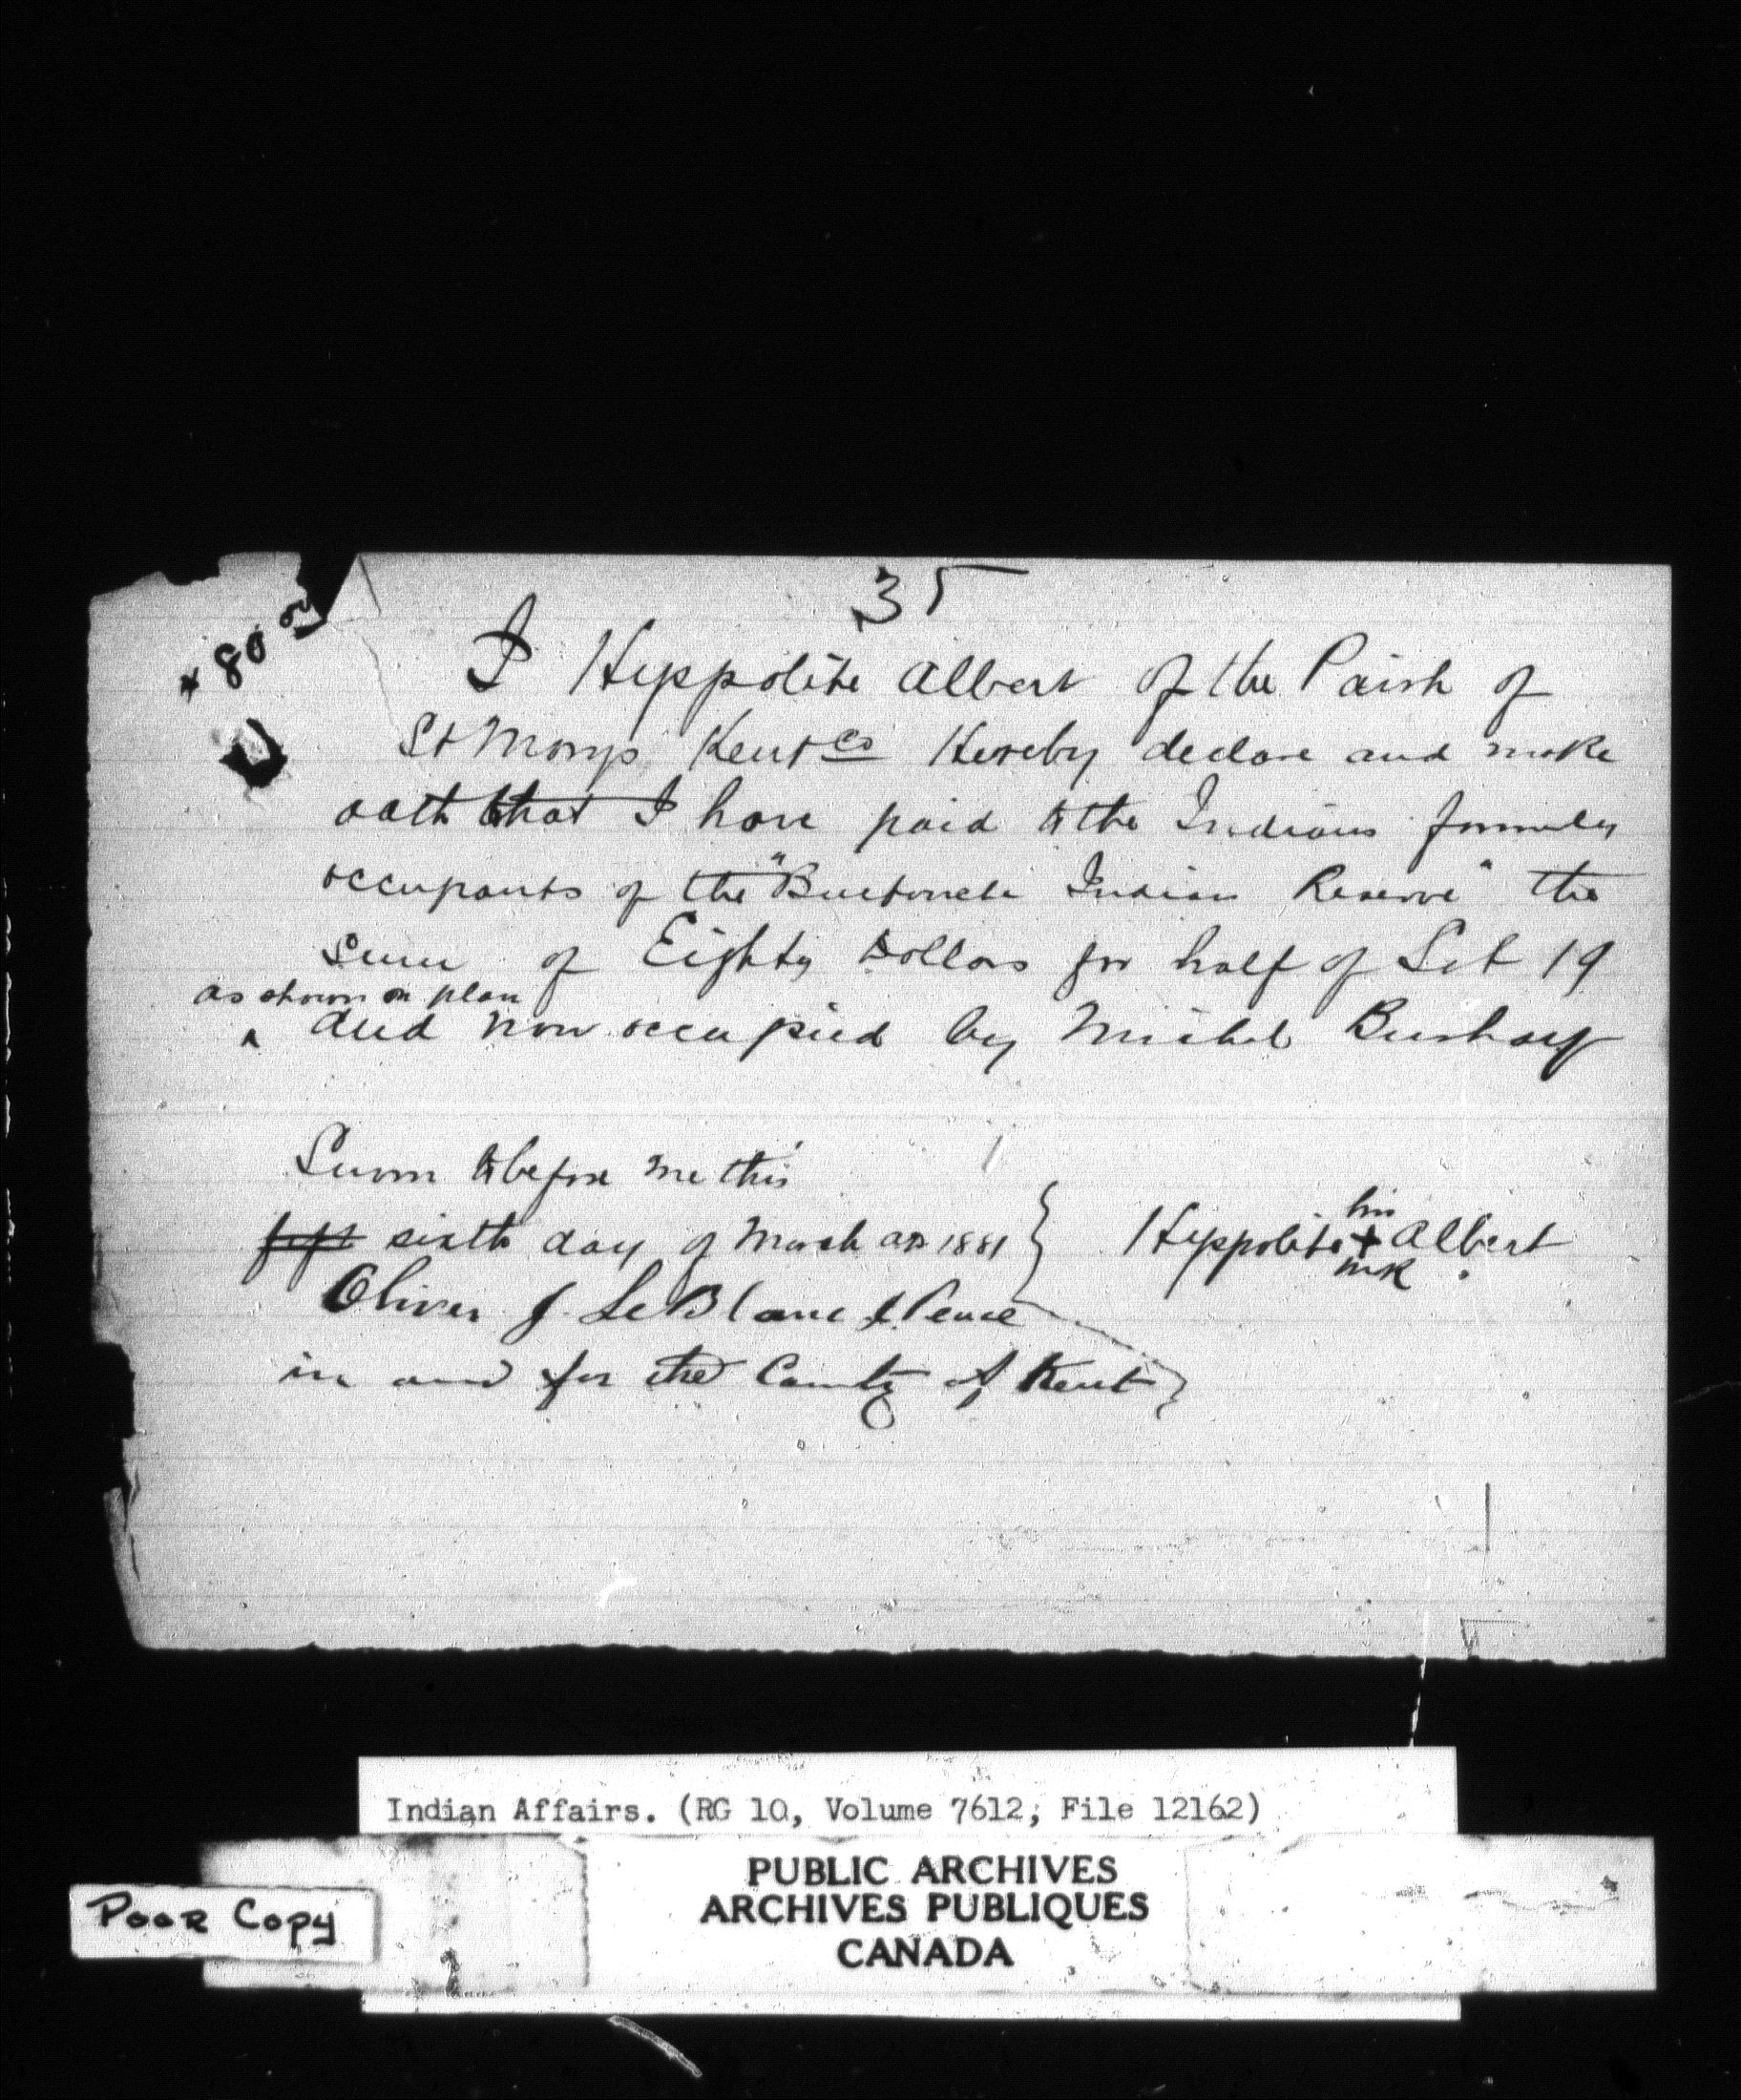 35
80 00
I Hyppolite Albert of the Parish of
St Marys Kent Co Hereby declare and make
oath that I have paid to the Indians formerly
occupants of the "Buctouche Indian Reserve" the
sum of Eighty Dollars for half of Lot 19
as shown on plan
and now occupied by Michel
Sworn to before me this
sixth day of March AD 1881
Hyppolite his + mk Albert
Oliver J. LeBlanc J. Peace
in and for the County of Kent
Indian Affairs. (RG 10, Volume 7612, File 12162)
PUBLIC ARCHIVES
ARCHIVES PUBLIQUES
CANADA
POOR COPY